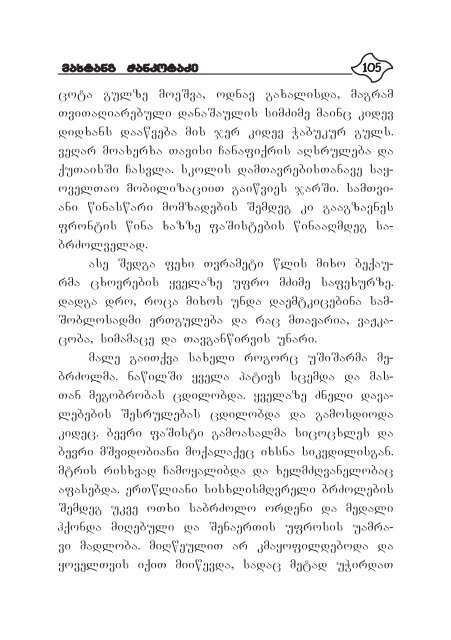 ვახტანგ ჟანკოტაძე 105
ცოტა გულზე მოეშვა, ოდნავ გახალისდა, მაგრამ
თვითაღიარებულ დანაშაულის სიმძიმე მაინც კიდევ
დიდხანს დააწვება მის ჯერ კიდევ ჭაბუკურ გულს.
ვეღარ მოახერხა თავისი ჩანაფიქრის აღსრულება და
ქუთაისში ჩასვლა. სკოლის დამთავრებისთანავე საყ-
ოველთაო მობილიზაციით გაიწვიეს ჯარში. სამთვი-
ანი წინასწარი მომზადების შემდეგ კი გააგზავნეს
ფრონტის წინა ხაზზე ფაშისტების წინააღმდეგ სა-
ბრძოლველად.
ასე შედგა ფეხი თვრამეტი წლის მიხო ბექაუ-
რმა ცხოვრების ყველაზე უფრო მძიმე საფეხურზე.
დადგა დრო, როცა მიხოს უნდა დაემტკიცებინა სამ-
შობლოსადმი ერთგულება და რაც მთავარია, ვაჟკა-
ცობა, სიმამაცე და თავგანწირვის უნარი.
მალე გაითქვა სახელი როგორც უშიშარმა მე-
ბრძოლმა. ნაწილში ყველა პატივს სცემდა და მას-
თან მეგობრობას ცდილობდა. ყველაზე ძნელი დავა-
ლებების შესრულებას ცდილობდა და გამოსდიოდა
კიდეც. ბევრი ფაშისტი გამოასალმა სიცოცხლეს და
ბევრი მშვიდობიანი მოქალაქეც იხსნა სიკვდილისგან.
მტრის რისხვად ჩამოყალიბდა და ხელმძღვანელობაც
აფასებდა. ერთწლიანი სისხლისმღვრელი ბრძოლების
შემდეგ უკვე ოთხი საბრძოლო ორდენი და მედალი
ჰქონდა მიღებული და შენაერთის უფროსის უამრა-
ვი მადლობა. მიღწეულით არ კმაყოფილდებოდა და
ყოველთვის იქით მიიწევდა, სადაც მეტად უჭირდათ